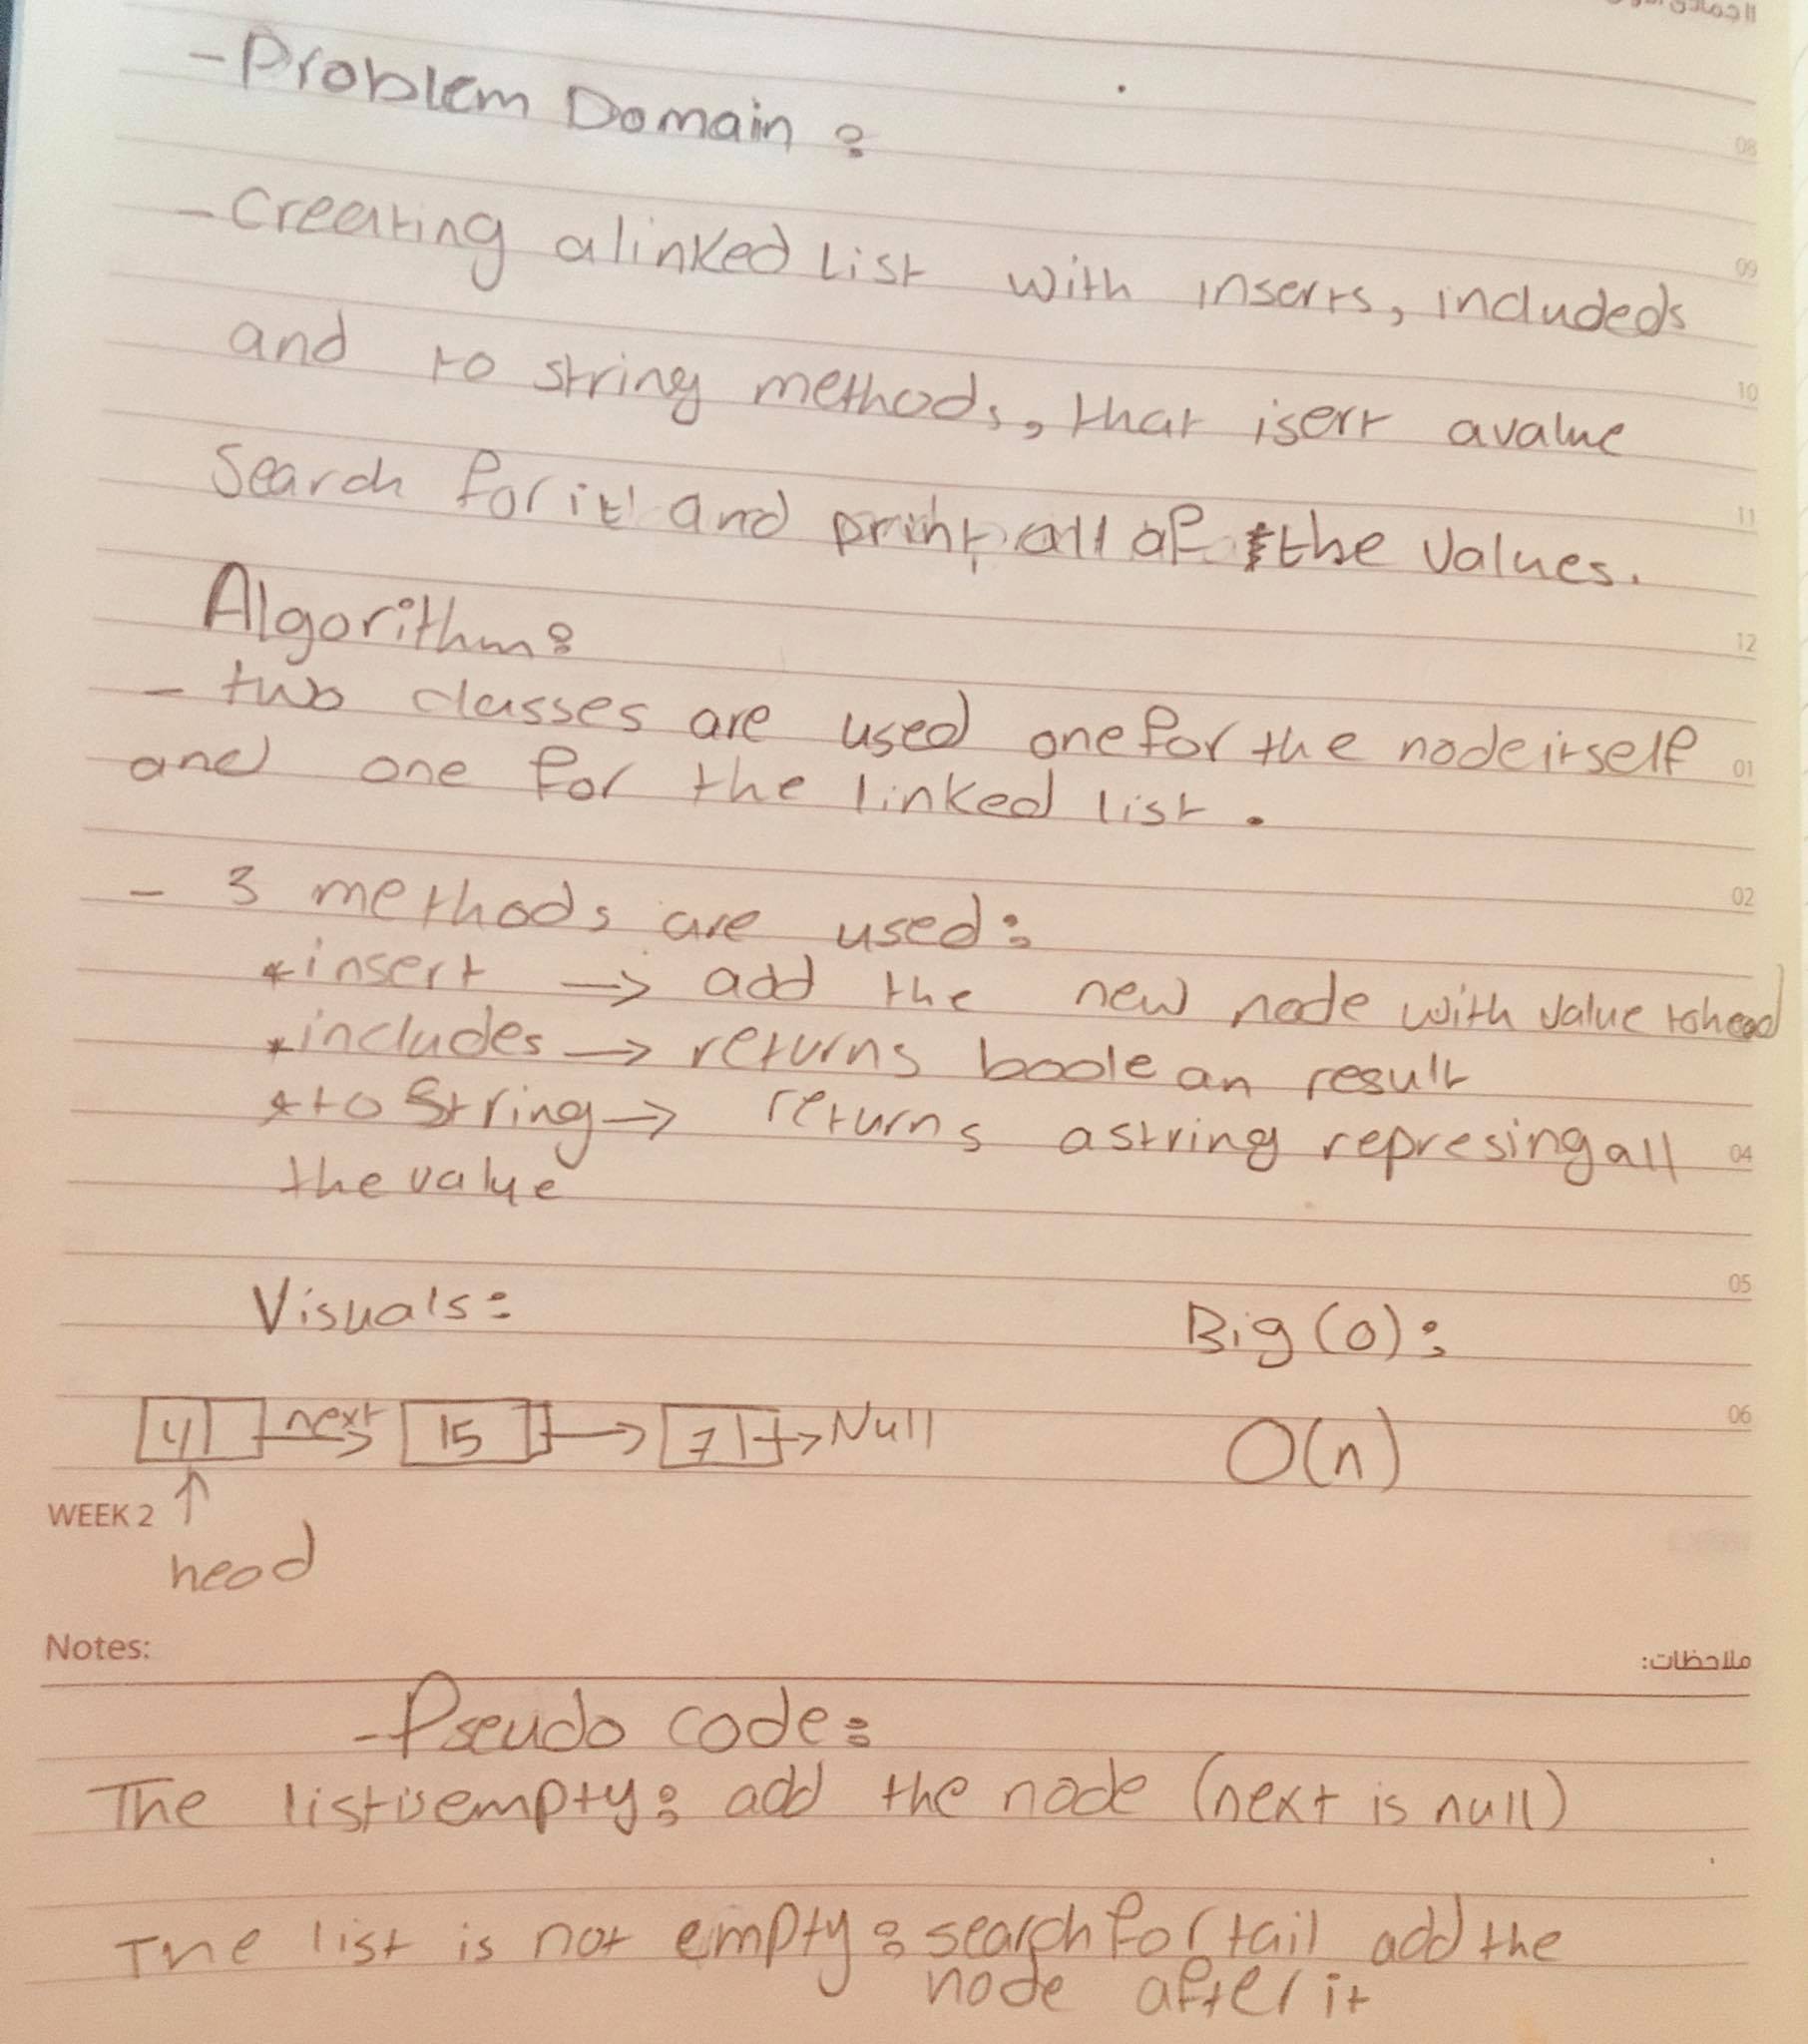 - Problem Domain :
08
- Creating a linked list with inserts, includeds
09
and to string methods, that isert a value
10
Search for it and print all of the values.
11
Algorithm:
12
- two classes are used one for the node itself
01
and one for the linked list.
- 3 methods are used:
02
*insert → add the new node with value to head
*includes → returns boolean result
*to String → returns a string represing all
04
the value
05
Visuals:
Big(O):
4 next → 15 → 7 → Null
06
O(n)
↑
WEEK 2
head
Notes:
ملاحظات:
- Pseudo code:
The list is empty: add the node (next is null)
The list is not empty: search for tail add the
node after it